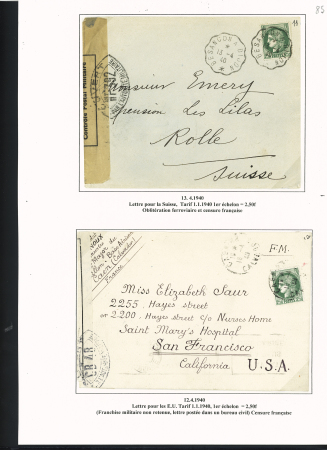 83
18
Contrôle Postal Militaire
OUVERT
BESANÇON
13 -4
40
Monsieur Emery
Pension Les Lilas
Rolle
Suisse
13. 4.1940
Lettre pour la Suisse, Tarif 1.1.1940 1er échelon = 2,50f
Oblitération ferroviaire et censure française
Caen (Calvados)
France
F.M.
Miss Elizabeth Saur
2255 Hayes street
or 2200. Hayes street c/o Nurses Home
Saint Mary's Hospital
San Francisco
California U.S.A.
12.4.1940
Lettre pour les E.U. Tarif 1.1.1940, 1er échelon = 2,50f
(Franchise militaire non retenue, lettre postée dans un bureau civil) Censure française